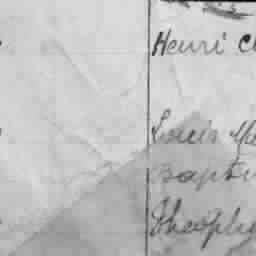 Henri C
Louis Ma
Baptis
Theophi